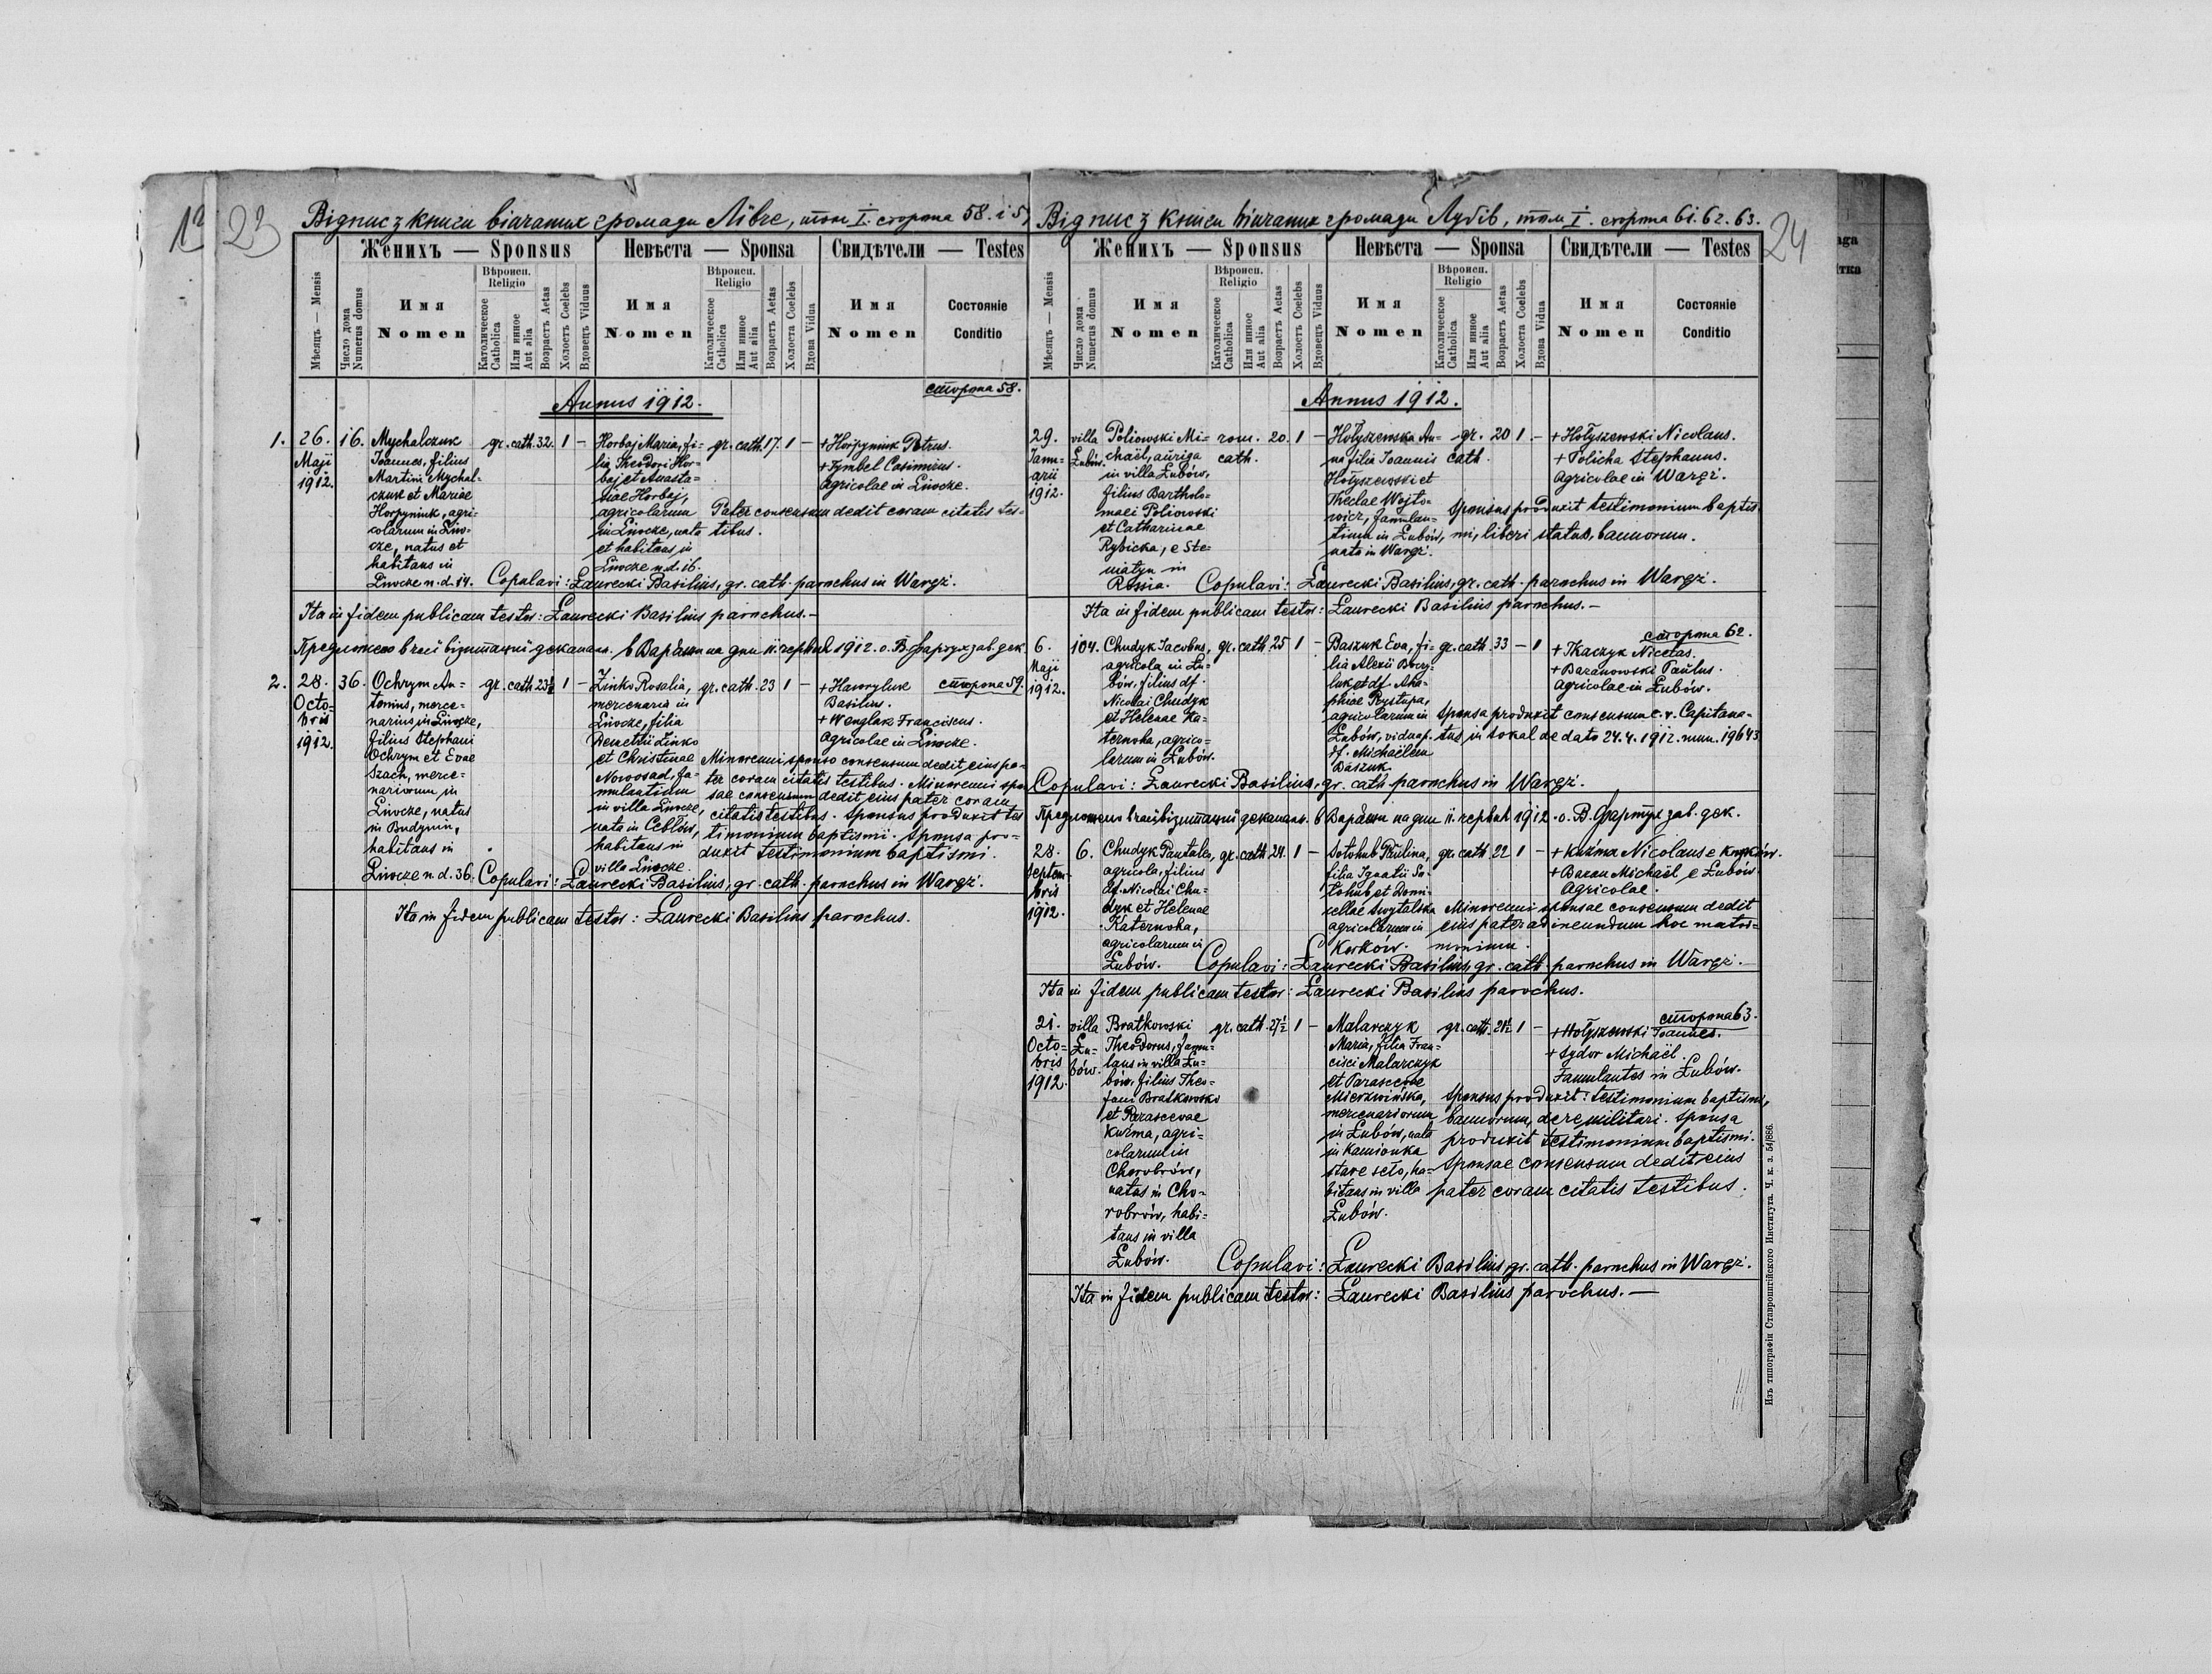 12
23
Відпис з книги вінчаних громади Лівче, том I. сторона 58. і 5
Женихъ — Sponsus
Невѣста — Sponsa
Свидѣтели — Testes
Мѣсяцъ — Mensis
Число дома
Numerus domus
Имя
Nomen
Вѣроисп.
Religio
Католическое
Catholica
Или инное
Aut alia
Возрастъ Aetas
Холостъ Coelebs
Вдовецъ Viduus
Имя
Nomen
Католическое
Catholica
Или инное
Aut alia
Возрастъ Aetas
Холоста Coelebs
Вдова Vidua
Имя
Nomen
Состояніе
Conditio
сторона 58.
Annus 1912.
1. 26. Maji 1912.
16.
Mychalczuk
Joannes, filius
Martini Mychal=
czuk et Mariae
Horpyniuk, agri=
colarum in Liw=
cze, natus et
habitans in
Liwcze n. d. 14.
gr. cath. 32. 1 –
Horbaj Maria, fi=
lia Theodori Hor=
baj et Anasta=
siae Horbaj,
agricolarum
in Liwcze, nata
et habitans in
Liwcze n. d. 16.
gr. cath. 17. 1 –
+ Horpyniuk Petrus.
+ Tymbel Casimirus.
Agricolae in Liwcze.
Pater consensum dedit coram citatis tes=
tibus.
Copulavi: Ławrecki Basilius, gr. cath. parochus in Wargż.
Ita in fidem publicam testor: Ławrecki Basilius parochus.–
Предложено в часі візитациї деканал. в Варяжи на дни 11. черв 1912. о. В. Фартух зав. дек.
2. 28. Octo=
bris
1912.
36.
Ochrym An=
tonius, merce=
narius in Liwcze,
filius Stephani
Ochrym et Evae
Szach, merce=
nariorum in
Liwcze, natus
in Budynin,
habitans in
Liwcze n. d. 36.
gr. cath. 23½ 1 –
Zinko Rosalia,
mercenaria in
Liwcze, filia
Demetrii Zinko
et Christinae
Nowosad, fa=
mulantium
in villa Liwcze,
nata in Cebłów,
habitans in
villa Liwcze.
gr. cath. 23 1 –
сторона 59.
+ Hawryluk
Basilius.
+ Wenglak Franciscus.
Agricolae in Liwcze.
Minorenni sponso consensum dedit eius pa=
ter coram citatis testibus. Minorenni spon
sae consensum dedit eius pater coram
citatis testibus. Sponsus produxit tes
timonium baptismi. Sponsa pro=
duxit testimonium baptismi.
Copulavi: Ławrecki Basilius, gr. cath. parochus in Wargż.
Ita in fidem publicam testor: Ławrecki Basilius parochus.
Відпис з книги вінчаних громади Лубів, том I. сторона 61. 62. 63.
24
Женихъ — Sponsus
Невѣста — Sponsa
Свидѣтели — Testes
Мѣсяцъ — Mensis
Число дома
Numerus domus
Имя
Nomen
Вѣроисп.
Religio
Католическое
Catholica
Или инное
Aut alia
Возрастъ Aetas
Холостъ Coelebs
Вдовецъ Viduus
Имя
Nomen
Вѣроисп.
Religio
Католическое
Catholica
Или инное
Aut alia
Возрастъ Aetas
Холоста Coelebs
Вдова Vidua
Имя
Nomen
Состояніе
Conditio
Annus 1912.
29.
Janu=
arii
1912.
villa
Łubów.
Poliowski Mi=
chaël, auriga
in villa Łubów,
filius Bartholo=
maei Poliowski
et Catharinae
Rybicka, e Ste=
niatyn in
Rossia.
rom. cath. 20. 1 –
Hołyszewska An=
na filia Joannis
Hołyszewski et
Theclae Wojto=
wicz, famulan=
tium in Łubów,
nata in Wargż.
gr. cath. 20 1. –
+ Hołyszewski Nicolaus.
+ Policha Stephanus.
Agricolae in Wargż.
Sponsus produxit testimonium baptis
mi, liberi status, bannorum.
Copulavi: Ławrecki Basilius, gr. cath. parochus in Wargż.
Ita in fidem publicam testor: Ławrecki Basilius parochus.–
6.
Maji
1912.
104.
Chudyk Jacobus,
agricola in Łu=
bów, filius df.
Nicolai Chudyk
et Helenae Ka=
ternoha, agrico=
larum in Łubów.
gr. cath. 25 1 –
Baszuk Eva, fi=
lia Alexii
et df. Aha=
phiae Prystupa,
agricolarum in
Łubów, vidua p.
df. Michaëlem
Baszuk.
gr. cath. 33 – 1
сторона 62.
+ Tkaczyk Nicetas.
+ Baranowski Paulus.
Agricolae in Łubów.
Sponsa produxit consensum c. r. Capitana=
tus in Sokal de dato 24. 4. 1912. num. 19643
Copulavi: Ławrecki Basilius, gr. cath. parochus in Wargż.
Предложено в часі візитациї деканал. в Варяжи на дни 11. черв 1912. о. В. Фартух зав. дек.
28.
Septem=
bris
1912.
6.
Chudyk Pantaleo,
agricola, filius
df. Nicolai Chu=
dyk et Helenae
Katernoha,
agricolarum in
Łubów.
gr. cath. 24. 1 –
Sołohub Paulina,
filia Ignatii So=
łohub et Domi=
cellae Swytalska
agricolarum in
Korków.
gr. cath. 22 1 –
+ Kuźma Nicolaus e Korków.
+ Baran Michaël e Łubów.
Agricolae.
Minorenni sponsae consensum dedit
eius pater ad ineundum hoc matri=
monium.
Copulavi: Ławrecki Basilius, gr. cath. parochus in Wargż.–
Ita in fidem publicam testor: Ławrecki Basilius parochus.
21.
Octo=
bris
1912.
villa
Łu=
bów.
Bratkowski
Theodorus, famu=
lans in villa Łu=
bów, filius Theo=
fani Bratkowski
et Parascevae
Kuźma, agri=
colarum in
Chorobrów,
natus in Cho=
robrów, habi=
tans in villa
Łubów.
gr. cath. 27½ 1 –
Malarczyk
Maria, filia Fran=
cisci Malarczyk
et Parascevae
Mierzwińska,
mercenariorum
in Łubów, nata
in Kamionka
stare seło, ha=
bitans in villa
Łubów.
gr. cath. 21½ 1 –
сторона 63.
+ Hołyszewski Joannes.
+ Sydor Michaël.
Famulantes in Łubów.
Sponsus produxit: testimonium baptismi,
bannorum, de re militari. Sponsa
produxit testimonium baptismi.
Sponsae consensum dedit eius
pater coram citatis testibus.
Copulavi: Ławrecki Basilius, gr. cath. parochus in Wargż.
Ita in fidem publicam testor: Ławrecki Basilius parochus.–
Изъ типографіи Ставропигійского Института. Ч. к. з. 54/886.